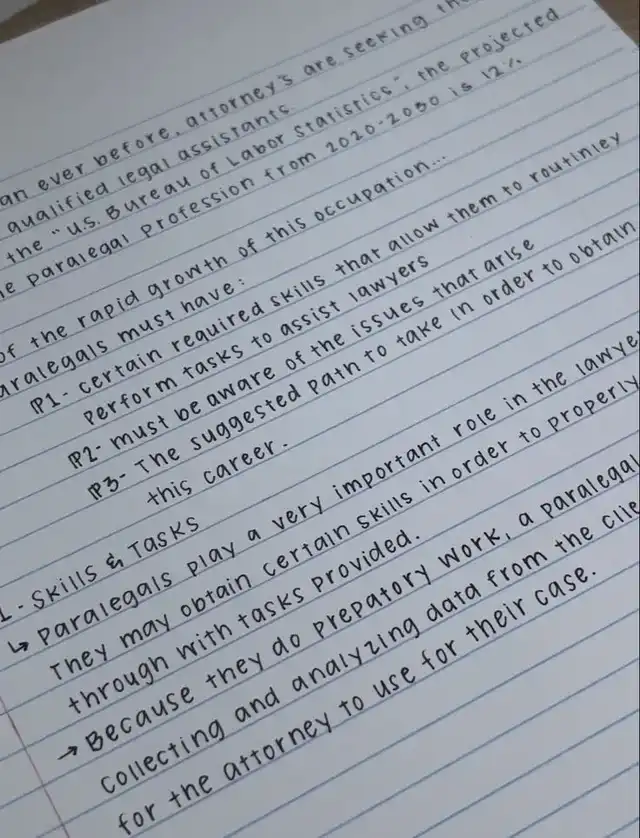 an ever before, attorney's are seeking
qualified legal assistants
the "U.S. Bureau of Labor Statistics", the projected
paralegal profession from 2020-2030 is 12%
of the rapid growth of this occupation...
aralegals must have:
P1- certain required skills that allow them to routinley
perform tasks to assist lawyers
P2- must be aware of the issues that arise
P3- The suggested path to take in order to obtain
this career.
1- Skills & Tasks
↳ Paralegals play a very important role in the lawye
They may obtain certain skills in order to properly
through with tasks provided.
→ Because they do prepatory work, a paralegal
collecting and analyzing data from the clie
for the attorney to use for their case.